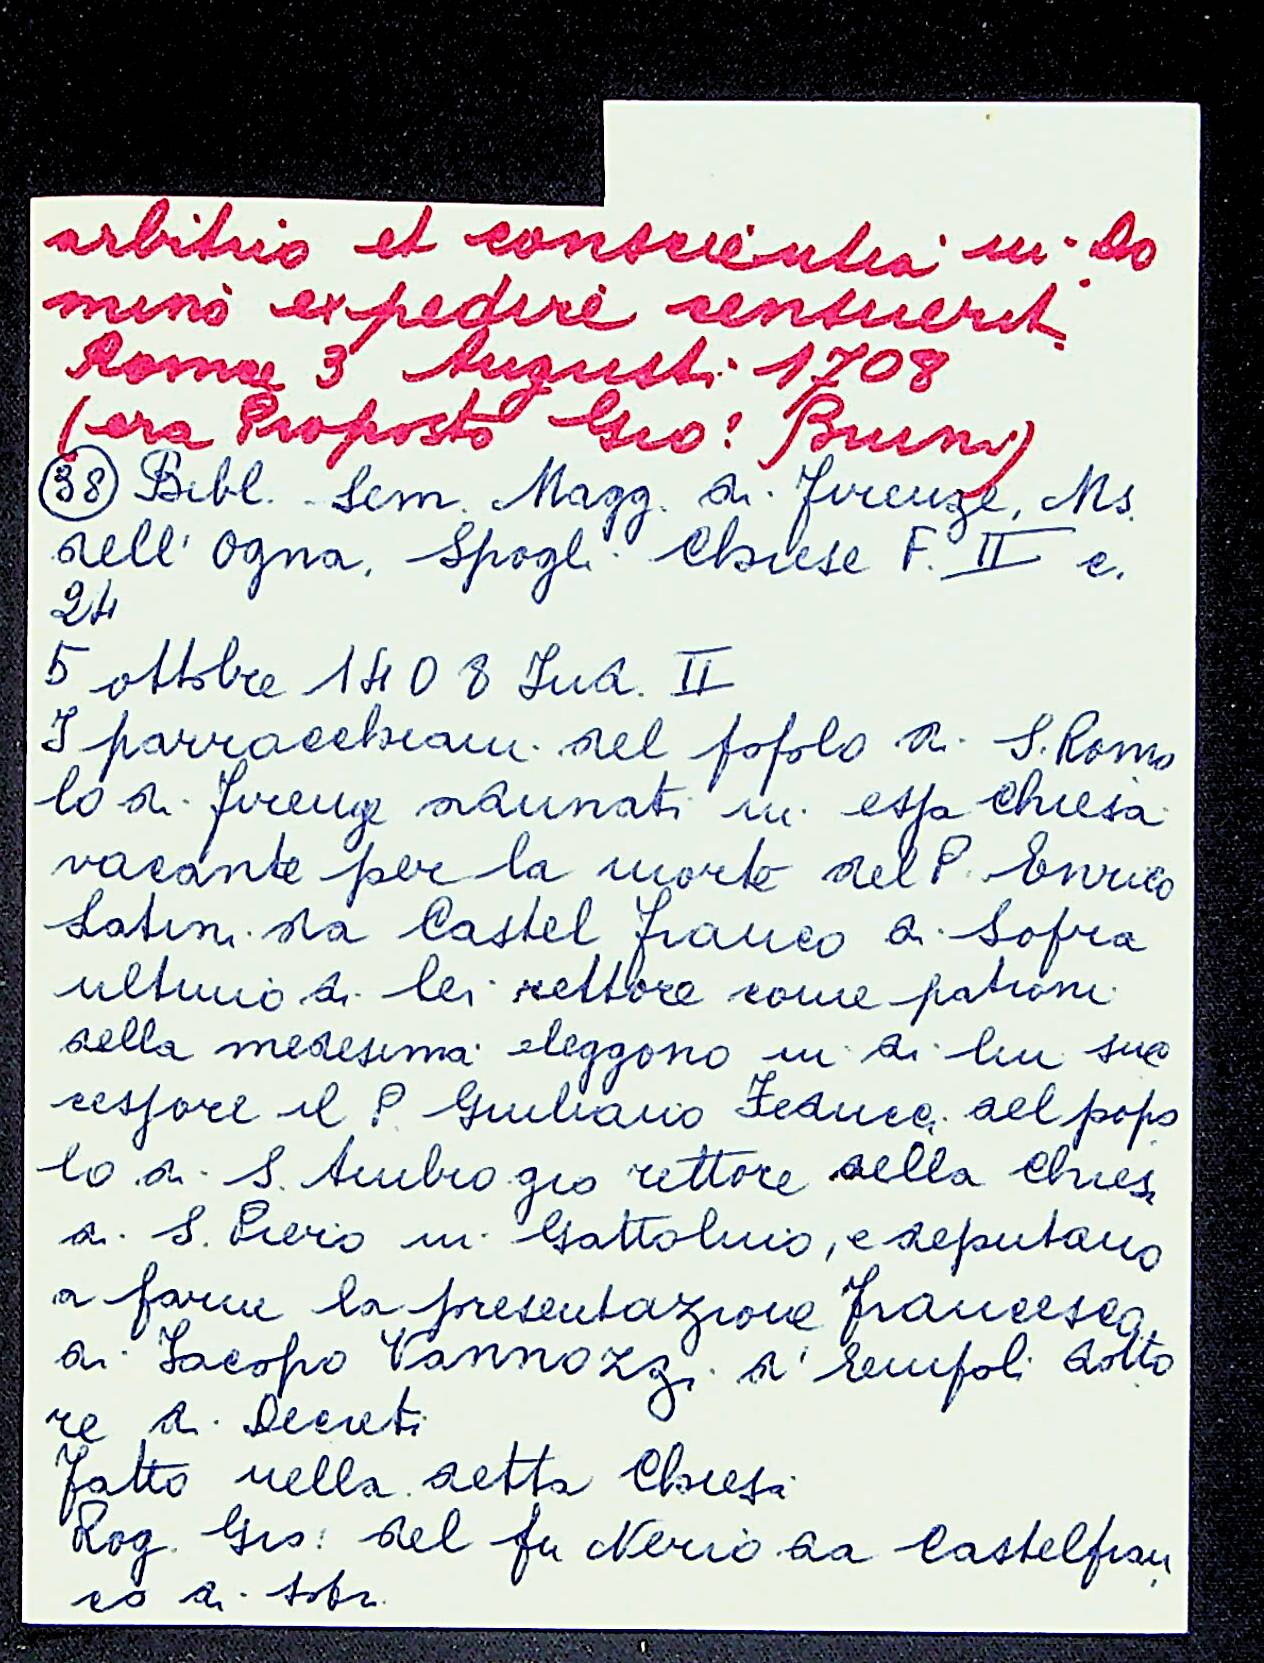 arbitrio et conscientia in Do
mino expedire censuerit
Romae 3 Augusti 1708
(era Proposto Gio: Bruni)
(38) Bibl. Sem. Magg. di Firenze, Ms.
dell'Ogna, Spogli Chiese F. II c.
24
5 ottobre 1408 Ind. II
I parracchiani del popolo di S. Romo
lo di Firenze adunati in essa Chiesa
vacante per la morte del P. Enrico
Latini da Castel franco di Sopra
ultimo di lei rettore come patroni
della medesima eleggono in di lui suc
cessore il P. Giuliano Feducci del popo
lo di S. Ambrogio rettore della Chiesa
di S. Piero in Gattolino, e deputano
a farne la presentazione Francesco
di Iacopo Vannozzi d'Empoli dotto
re di Decreti
Fatto nella detta Chiesa
Rog. Gio: del fu Nerio da Castelfran
co di sopr.